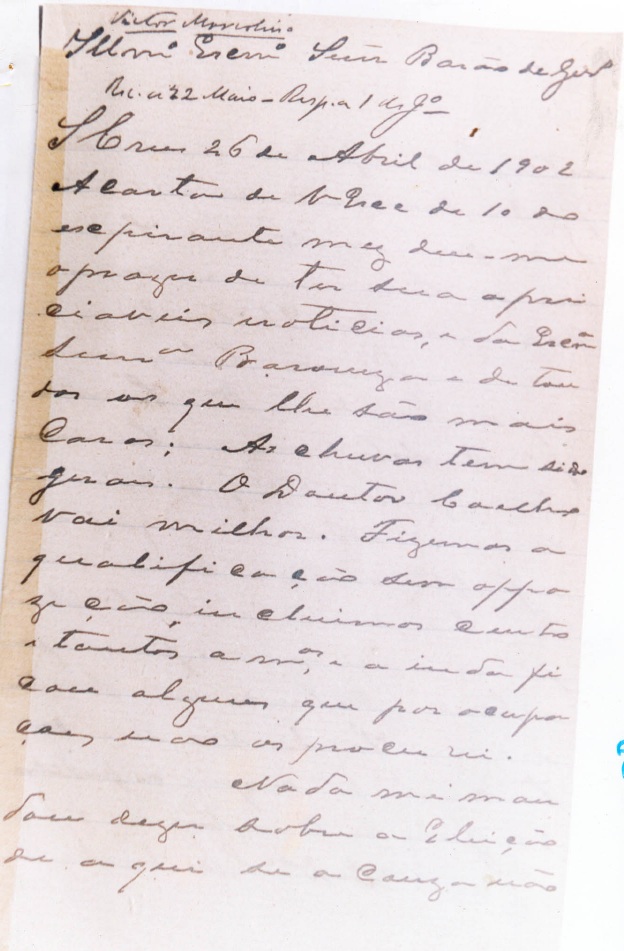 Victor Marcolino
Illmº Exemº Senr Barão de Ger
Rec. a 22 Maio - Resp. a 1 de Jº
S Cruz 26 de Abril de 1902
A carta de V Exce de 10 do
expirante mez deu-me
o prazer de ter sua apri
ciaveis noticias, e da Excmª
Senrª Baroneza e de tou
dos os que lhe são mais
Caros; As chuvas tem sido
gerais. O Doutor Coelho
vai milhor. Fizemos a
qualificação sem oppo
zeção, incluimos cento
e tantos amos, e ainda fi
cou alguns que por ocupa
ções não os procurei.
Nada mi man
dou dezer sobre a Eleição
de aqui se a Cauza não